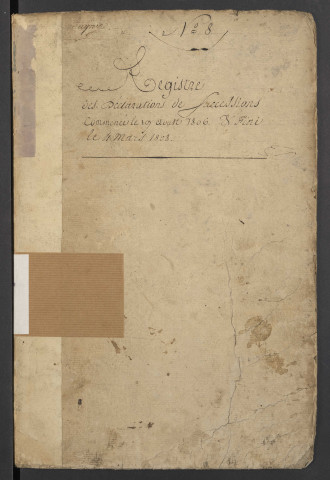 N° 8
Registre
des Déclarations de Successions
Commencé le 19 Aoust 1806. & fini
le 4 Mars 1808.